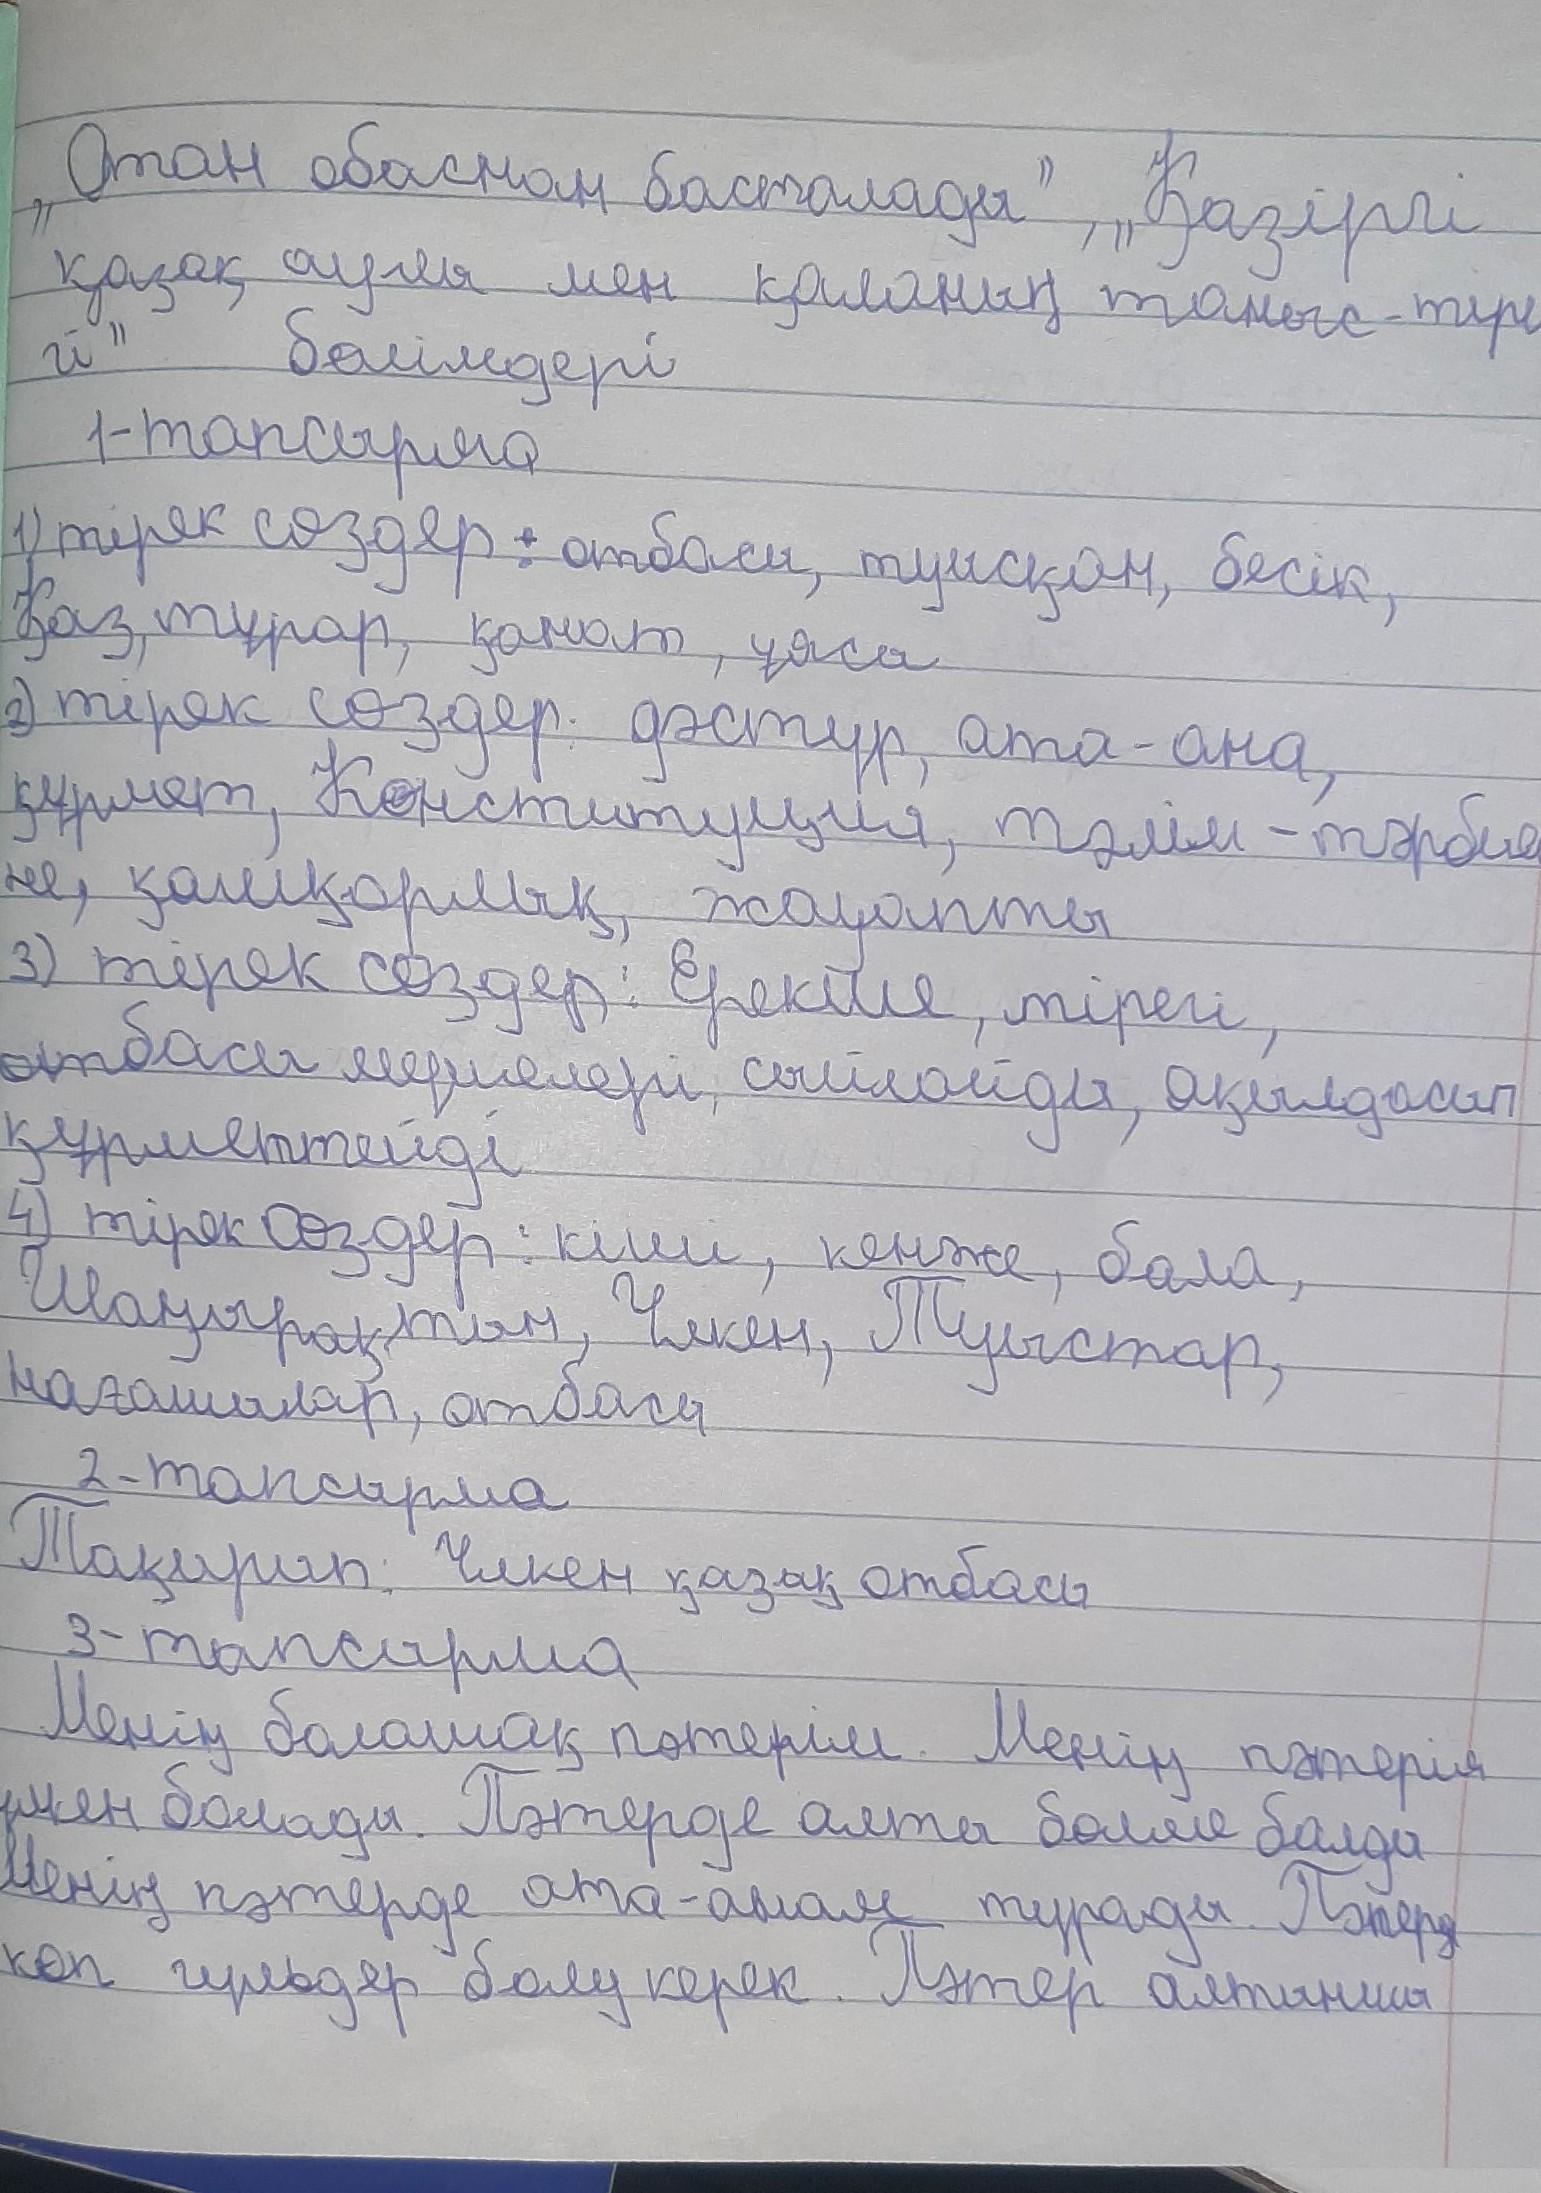 „Отан обаснан басталады", „Қазіргі
қазақ аулы мен қаланың таныс-тіре
гі" бөлімдері
1-тапсырма
1) тірек сөздер: отбасы, туысқан, бесік,
Қаз, тұрар, қанат, ұясы
2) тірек сөздер: дәстүр, ата-ана,
құрмет, Конституция, тәлім-тәрбие
не, қамқорлық, жауапты
3) тірек сөздер: Ерекше, тірегі,
отбасы мүшелері, сыйлайды, ақылдасып
құрметтейді
4) тірек сөздер: кіші, кенже, бала,
Шаңырақтың, Үлкен, Туыстар,
нағашылар, отбасы
2-тапсырма
Тақырып: Үлкен қазақ отбасы
3-тапсырма
Менің болашақ пәтерім. Менің пәтерім
үлкен болады. Пәтерде алты бөлме балды
Менің пәтерде ата-анам тұрады. Пәтерд
көп гүльдер болу керек. Пәтер алтыншы